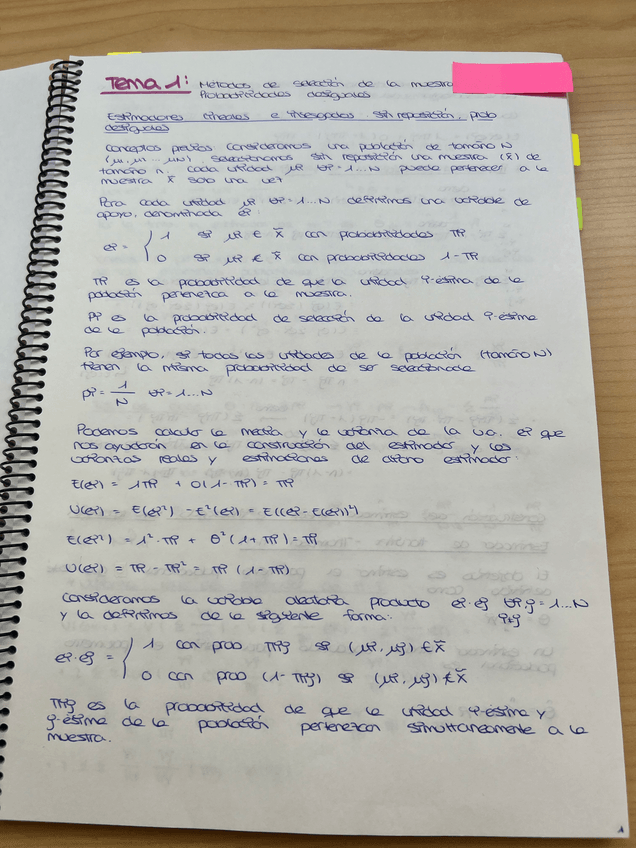 Tema 1: Métodos de selección de la muestra
Probabilidades desiguales
Estimadores lineales e insesgados. Sin reposición, prob
desiguales
Conceptos previos: Consideramos una población de tamaño N
(μ1, μ1 ... μN), seleccionamos sin reposición una muestra (x̃) de
tamaño n. Cada unidad μi ∀i=1...N puede pertenecer a la
muestra x̃ solo una vez
Para cada unidad μi ∀i=1...N definimos una variable de
apoyo, denominada ei:
ei = { 1 si μi ∈ x̃ con probabilidades πi
0 si μi ∉ x̃ con probabilidades 1-πi
πi es la probabilidad de que la unidad i-ésima de la
población pertenezca a la muestra.
pi es la probabilidad de selección de la unidad i-ésima
de la población.
Por ejemplo, si todas las unidades de la población (tamaño N)
tienen la misma probabilidad de ser seleccionada
pi = 1/N ∀i=1...N
Podemos calcular la media y la varianza de la v.a. ei que
nos ayudarán en la construcción del estimador y las
varianzas reales y estimaciones de dicho estimador:
E(ei) = 1πi + 0(1-πi) = πi
V(ei) = E(ei²) - E²(ei) = E((ei-E(ei))²)
E(ei²) = 1²·πi + 0²(1+πi) = πi
V(ei) = πi - πi² = πi (1-πi)
Consideramos la variable aleatoria producto ei·ej ∀i,j=1...N
i≠j
y la definimos de la siguiente forma:
ei·ej = { 1 con prob πij si (μi, μj) ∈ x̃
0 con prob (1-πij) si (μi, μj) ∉ x̃
πij es la probabilidad de que la unidad i-ésima y
j-ésima de la población pertenezcan simultáneamente a la
muestra.
1